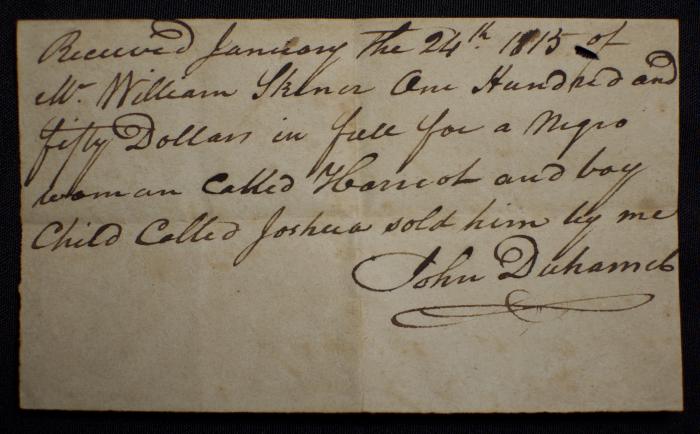 Received January the 24th 1815 of
Mr William Skiner One Hundred and
fifty Dollars in full for a Negro
woman Called Harriot and boy
Child Called Joshua sold him by me
John Duhamel